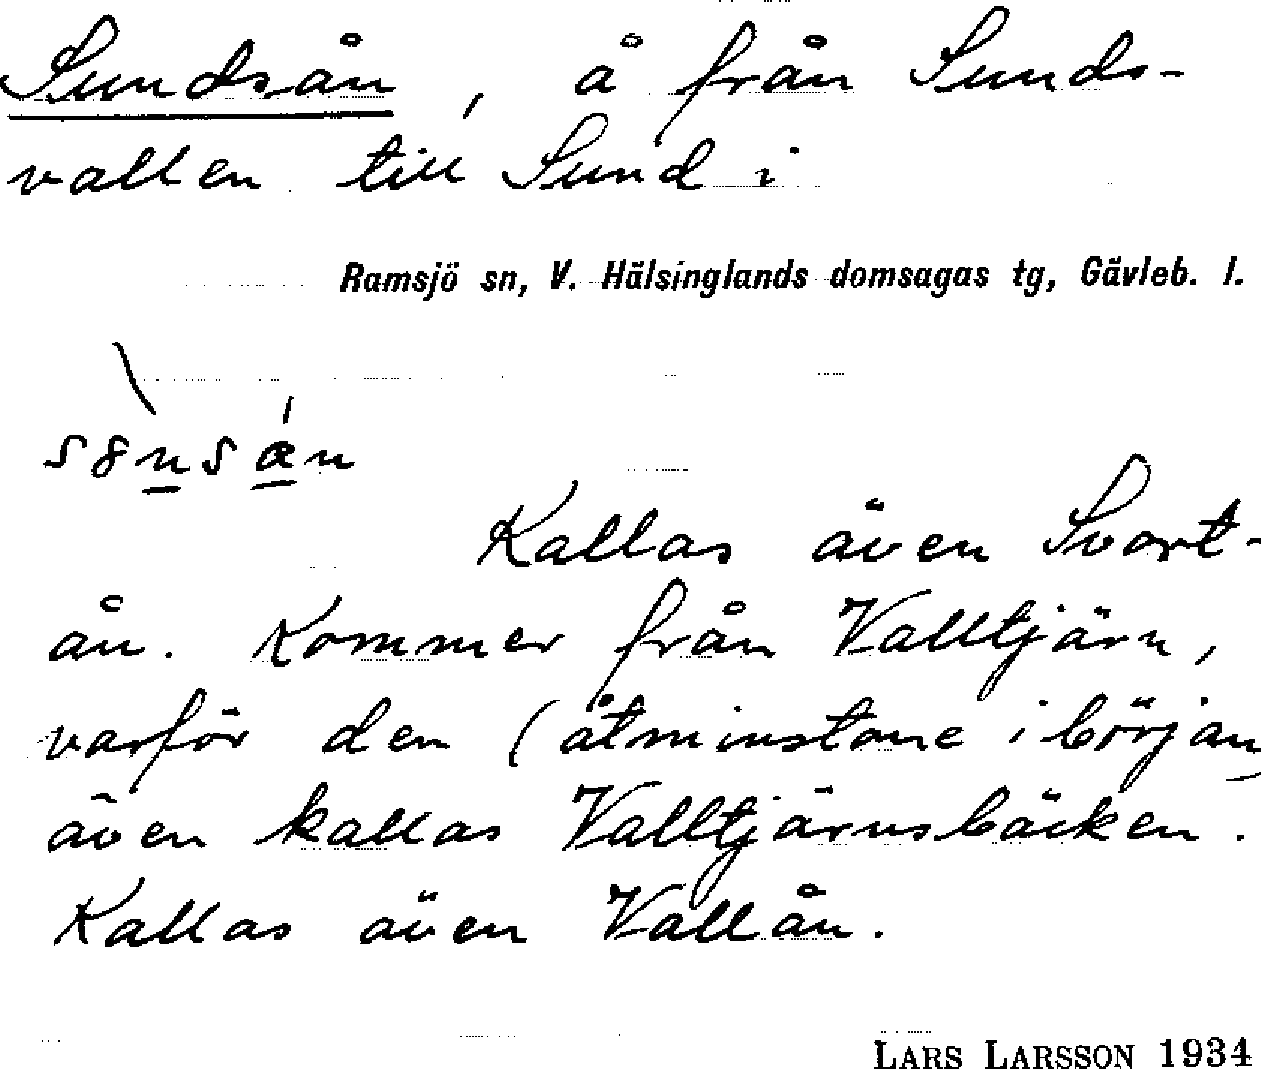 Sundsån, å från Sunds-
vallen till Sund i
Ramsjö sn, V. Hälsinglands domsagas tg, Gävleb. l.
Kallas även Svart-
ån. Kommer från Valltjärn,
varför den (åtminstone i början)
även kallas Valltjärnsbäcken.
Kallas även Vallån.
LARS LARSSON 1934